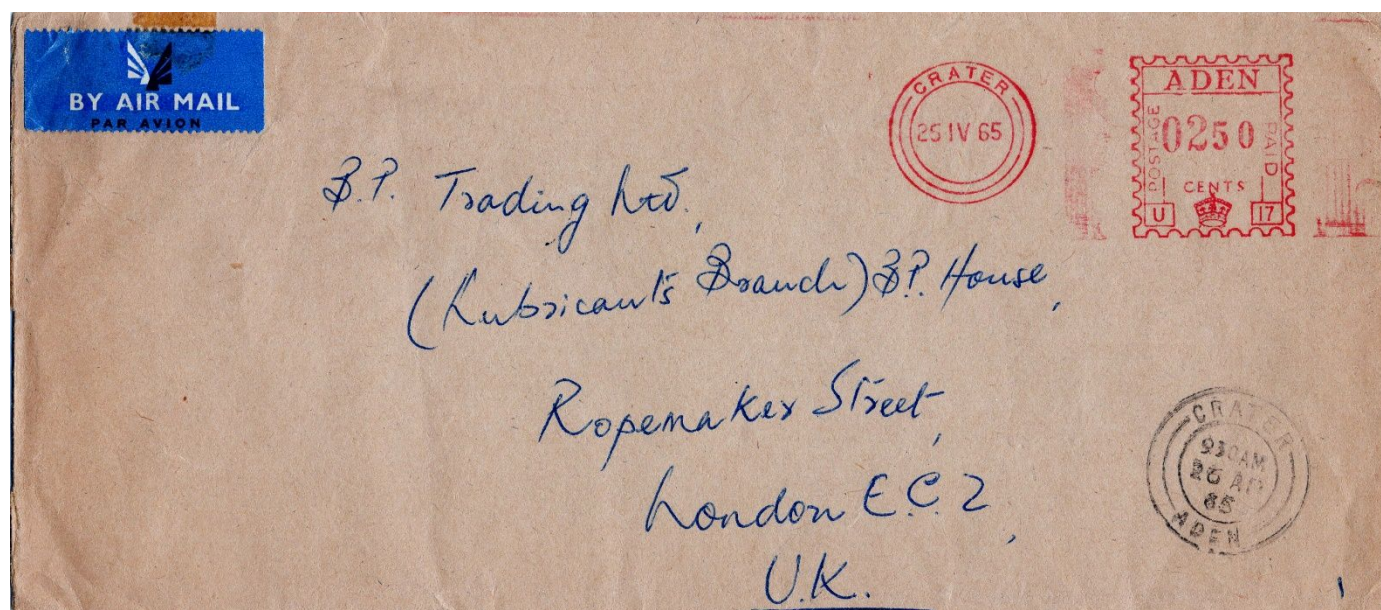 BY AIR MAIL
PAR AVION
CRATER
25 IV 65
ADEN
POSTAGE
0250
PAID
CENTS
U
17
B.P. Trading Ltd.,
(Lubricant's Branch) B.P. House,
Ropemaker Street,
London E.C.2,
U.K.
CRATER
930AM
26 AP
65
ADEN